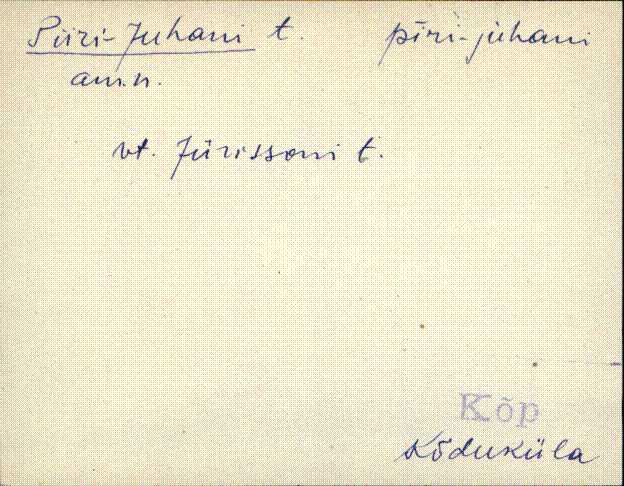 Piiri-Juhani t. pīri-juhani
am.n.
vt. Jürissoni t.
Kõp
Kõduküla